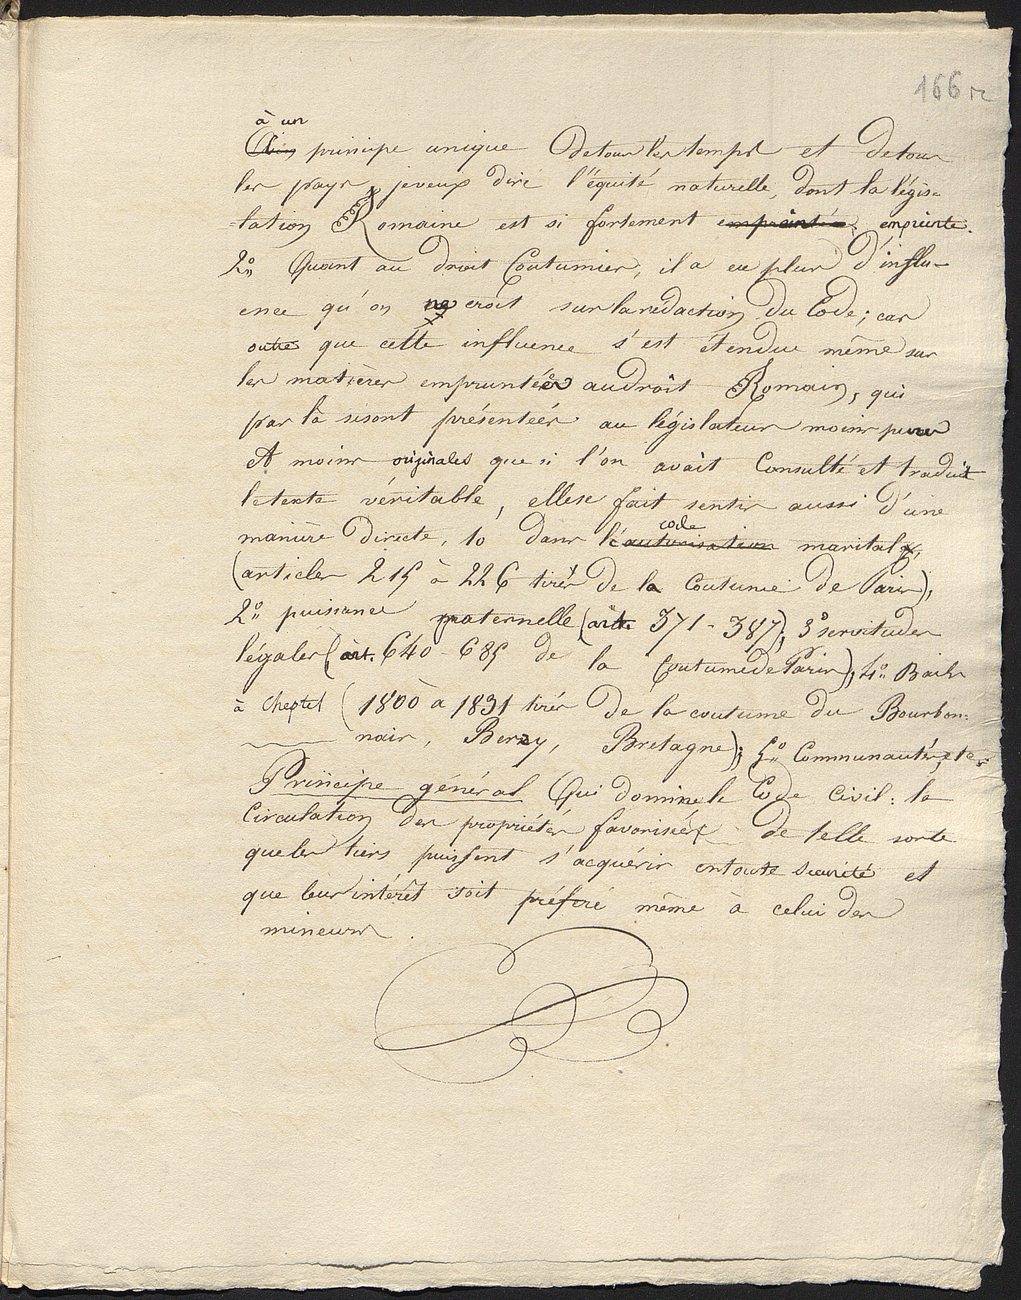 166 r
à un
principe unique de tous les temps et de tous
les pays, je veux dire l'équité naturelle, dont la légis-
-lation Romaine est si fortement empreinte empreinte.
2º Quant au droit Coutumier, il a eu plus d'influ-
ence qu'on ne croit sur la rédaction du Code; car
outre que cette influence s'est étendue même sur
les matières empruntées au droit Romain, qui
par là se sont présentées au législateur moins pures
et moins originales que si l'on avait Consulté et traduit
le texte véritable, elle se fait sentir aussi d'une
code
manière directe, 1º dans l'autorisation marital,
(articles 215 à 226 tirés de la Coutume de Paris),
2º puissance paternelle (art. 371 - 387), 3º servitudes
légales (art. 640 - 685 de la Coutume de Paris), 4º Bails
à Cheptel (1800 à 1831 tirés de la coutume du Bourbon-
nais, Berry, Bretagne); 5º Communauté, etc.
Principe général Qui domine le Code Civil: la
Circulation des propriétés favorisée de telle sorte
que les tiers puissent s'acquérir en toute sécurité et
que leur intérêt soit préféré même à celui des
mineurs.